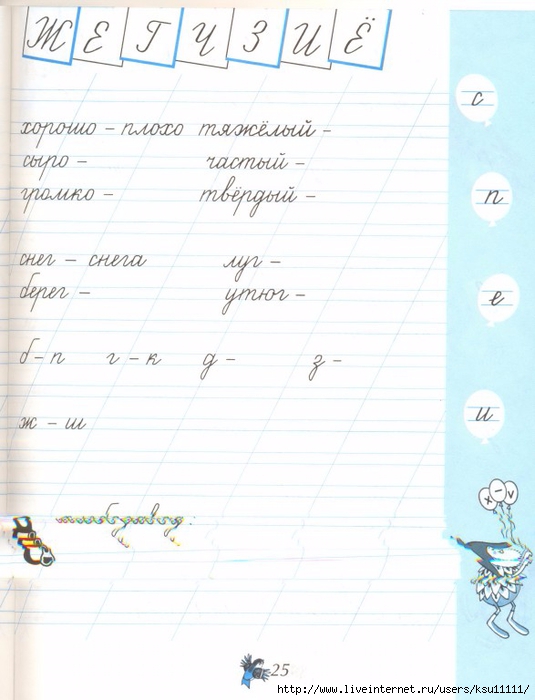 Ж Е Г Ч З И Ё
хорошо – плохо тяжёлый –
сыро – частый –
громко – твёрдый –
снег – снега луг –
берег – утюг –
б – п г – к д – з –
ж – ш
с
п
е
и
х – v
25
http://www.liveinternet.ru/users/ksu11111/